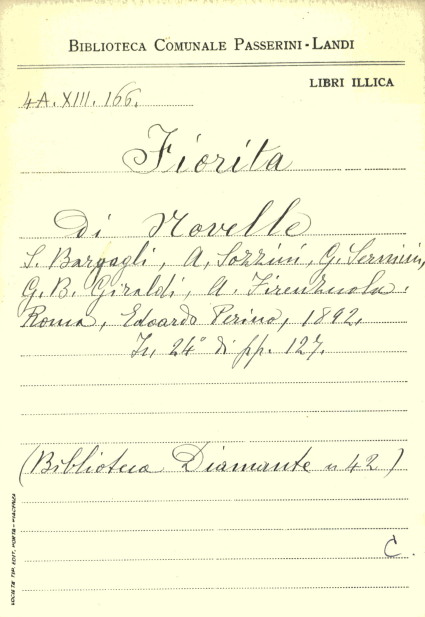 BIBLIOTECA COMUNALE PASSERINI-LANDI
LIBRI ILLICA
4A. XIII. 166.
Fiorita
di Novelle
S. Bargagli, A. Sozzini, G. Sermini,
G. B. Giraldi, A. Firenzuola.
Roma, Edoardo Perino, 1892,
In 24° di pp. 127.
(Biblioteca Diamante n 42)
C.
SOCIETÀ TIP. EDIT. PORTA-PIACENZA